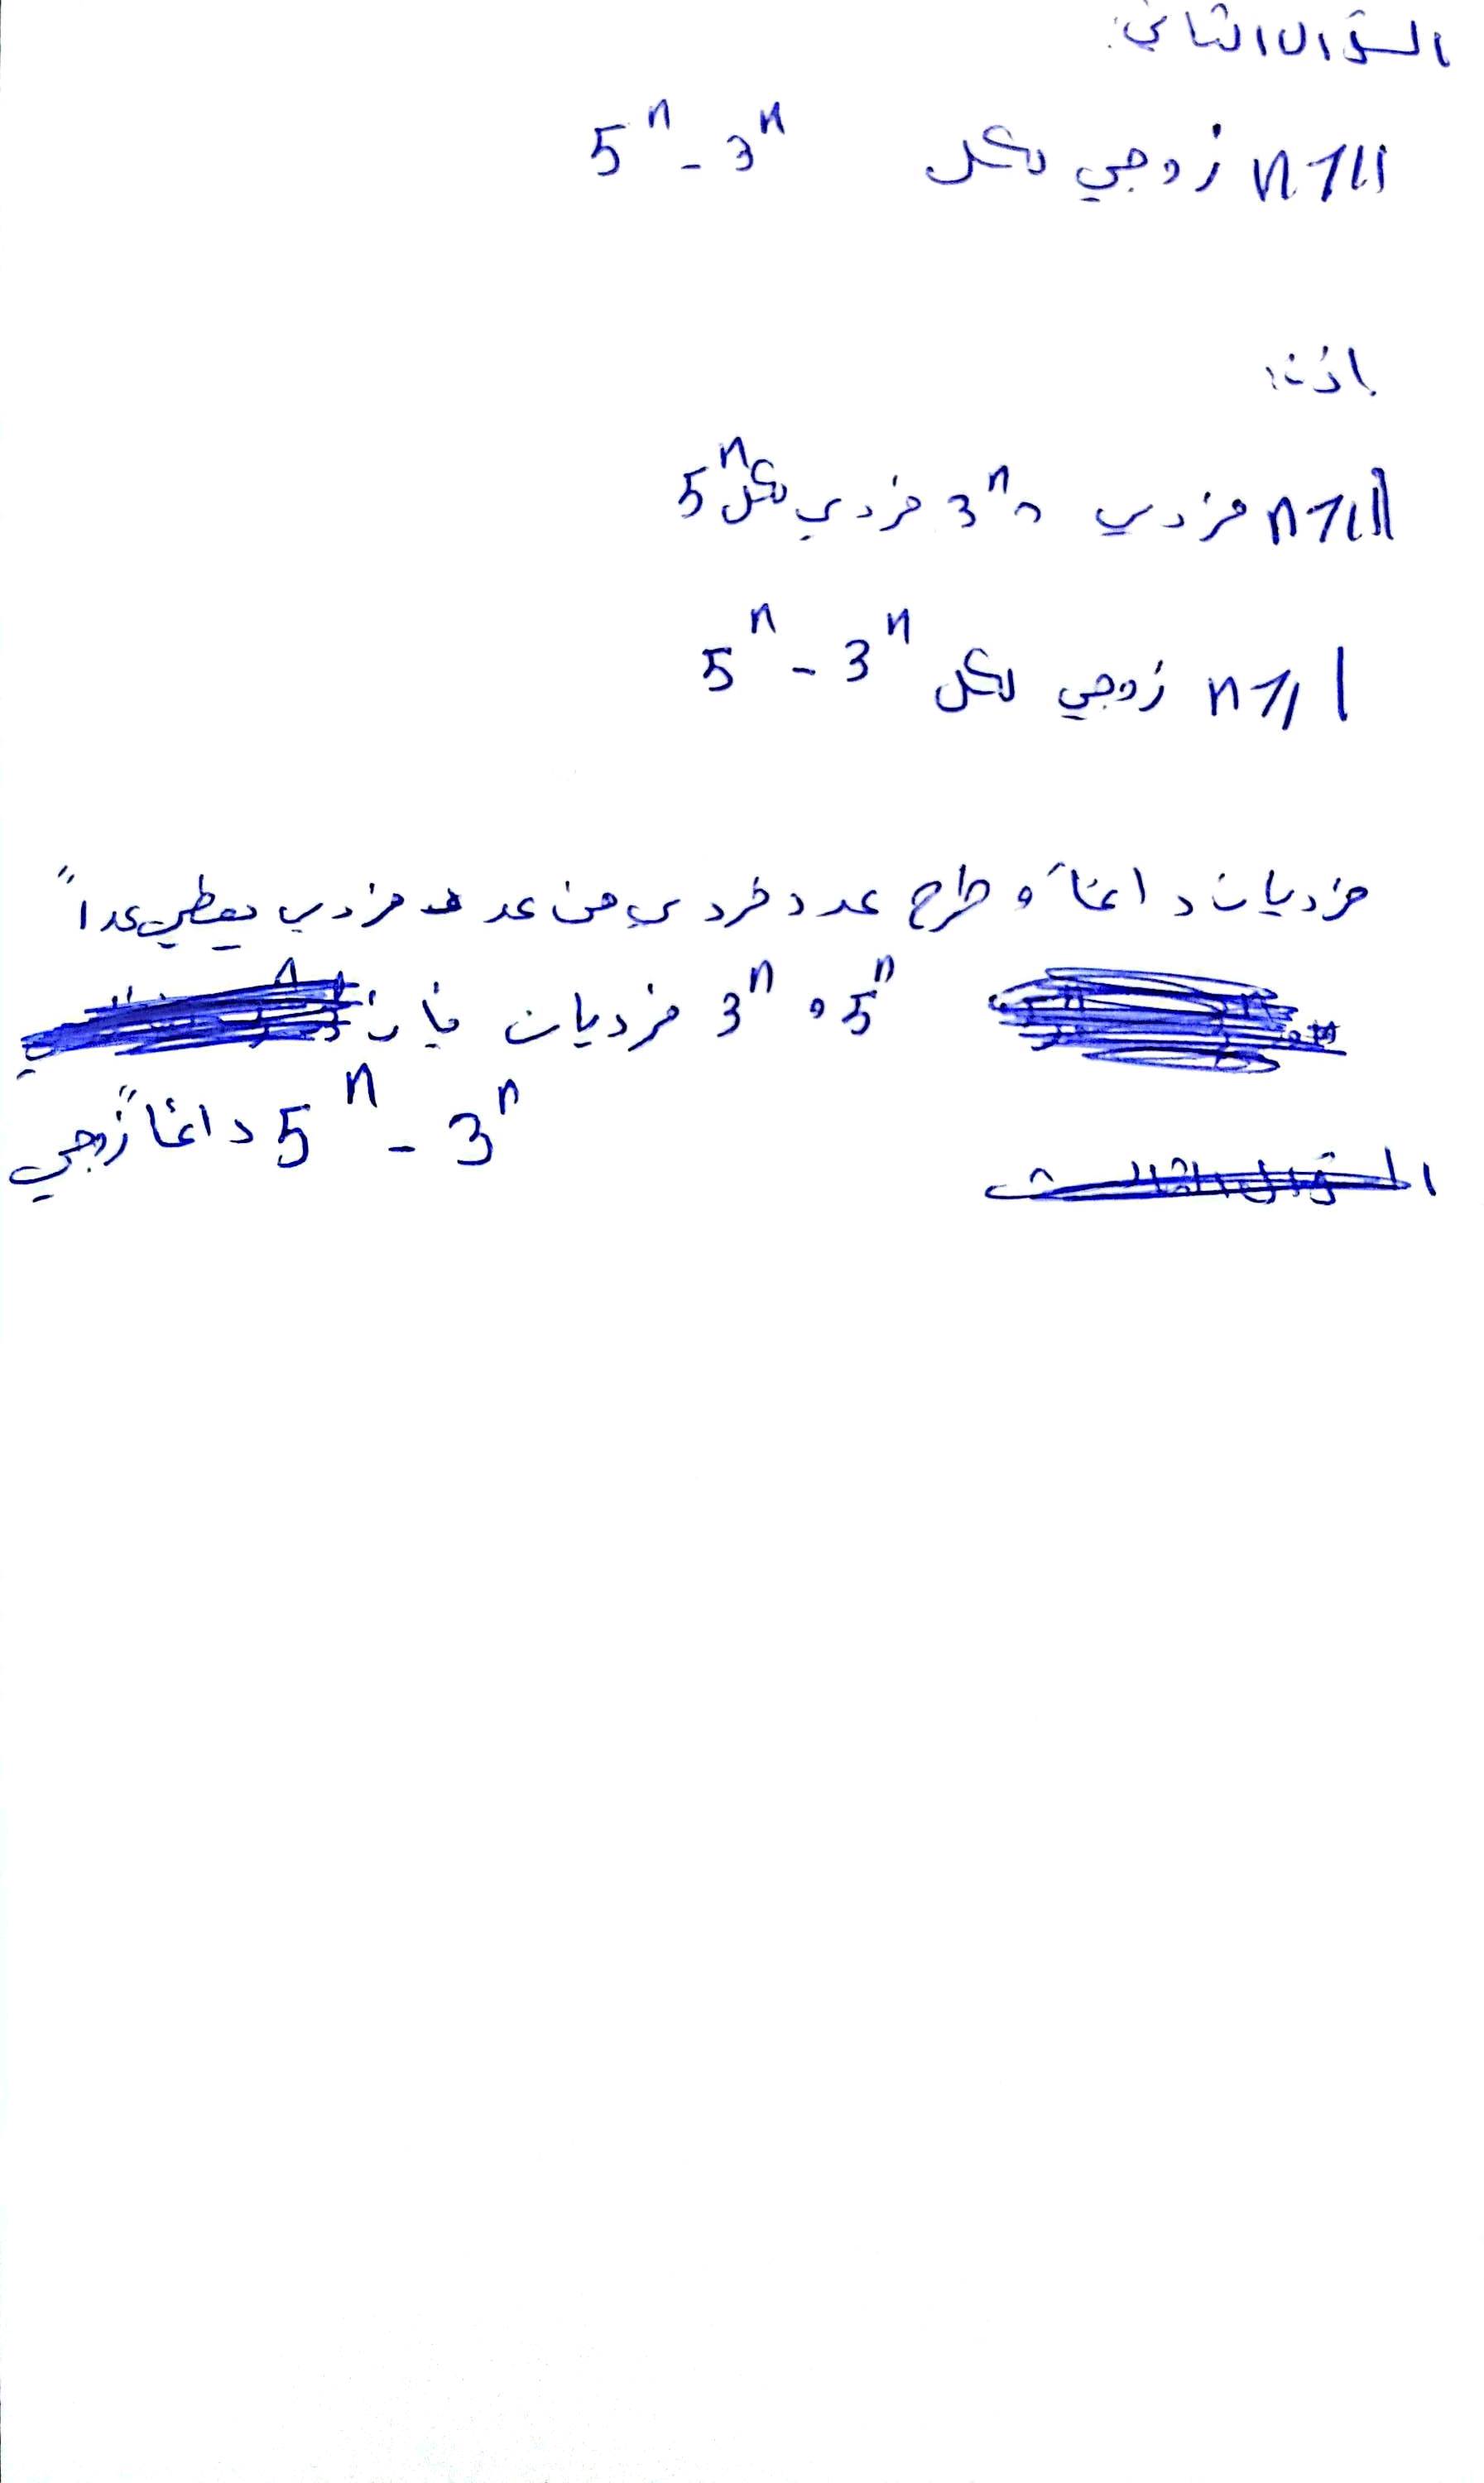 السؤال الثاني:
5ⁿ - 3ⁿ زوجي لكل n ≥ 1
إذن:
5ⁿ فردي و 3ⁿ فردي لكل n ≥ 1
5ⁿ - 3ⁿ زوجي لكل n ≥ 1
فرديان دائماً و طرح عدد فردي من عدد فردي يعطي عدداً
5ⁿ و 3ⁿ فرديان فإن
5ⁿ - 3ⁿ دائماً زوجي
السؤال الثالث